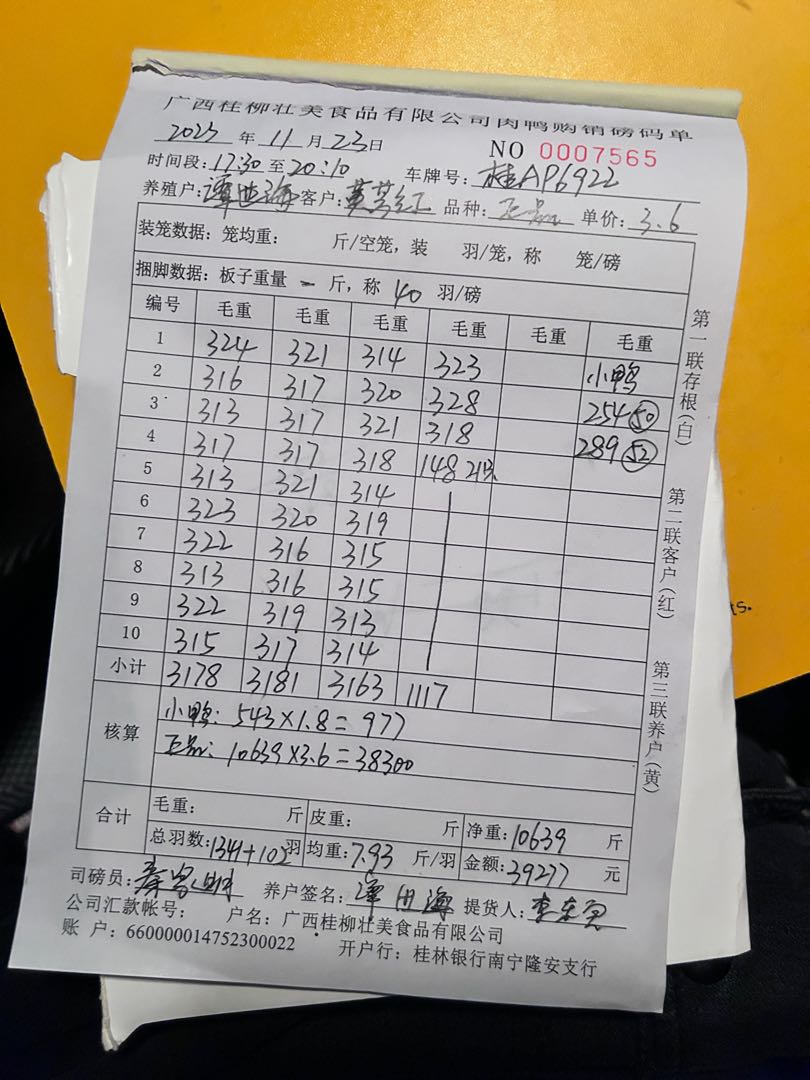 广西桂柳壮美食品有限公司肉鸭购销磅码单
2023 年 11 月 23 日 NO 0007565
时间段: 17:30 至 20:10 车牌号: 桂AP6922
养殖户: 谭世海 客户: 黄 红 品种: 正品 单价: 3.6
装笼数据: 笼均重: 斤/空笼, 装 羽/笼, 称 笼/磅
捆脚数据: 板子重量 一 斤, 称 40 羽/磅
编号 毛重 毛重 毛重 毛重 毛重 毛重
1 324 321 314 323 小鸭
2 316 317 320 328 254 50
3 313 317 321 318 289 52
4 317 317 318 148 21只
5 313 321 314
6 323 320 319
7 322 316 315
8 313 316 315
9 322 319 313
10 315 317 314
小计 3178 3181 3163 1117
核算 小鸭: 543×1.8=977
正品: 10639×3.6=38300
合计 毛重: 斤 皮重: 斤 净重: 10639 斤
总羽数: 1341+102 羽 均重: 7.93 斤/羽 金额: 39277 元
司磅员: 养户签名: 谭世海 提货人:
公司汇款帐号: 户名: 广西桂柳壮美食品有限公司
账户: 660000014752300022 开户行: 桂林银行南宁隆安支行
第一联存根(白)
第二联客户(红)
第三联养户(黄)
ts.